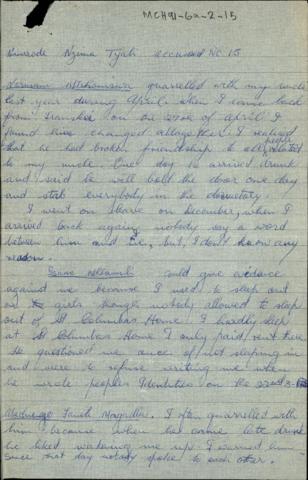 MCH91-6a-2-15
Nimrode Nzima Tyali accused NO 15
quarrelled with my uncle
last year during April. When I came back
from Transkei on or of April I
found lives changed altogether. I realised
that he had broken friendship to all people related
to my uncle. One day he arrived drunk
and said he will bolt the door one day
and stab everybody in the dormitory.
I went on leave on December, when I
arrived back again, nobody say a word
between him and me, but, I don't know any
reason.
could give evidence
against me because I used to sleep out
girls though nobody allowed to sleep
out of St Columbas Home. I hardly sleep
at St Columbas Home I only paid rent here
He questioned me ance of not sleeping in
and were to refuse writing me when
he wrote peoples Identities on the
I often quarrelled with
him because when he came late drunk
he liked wakening me up. I warned him
Since that day nobody spoke to each other.